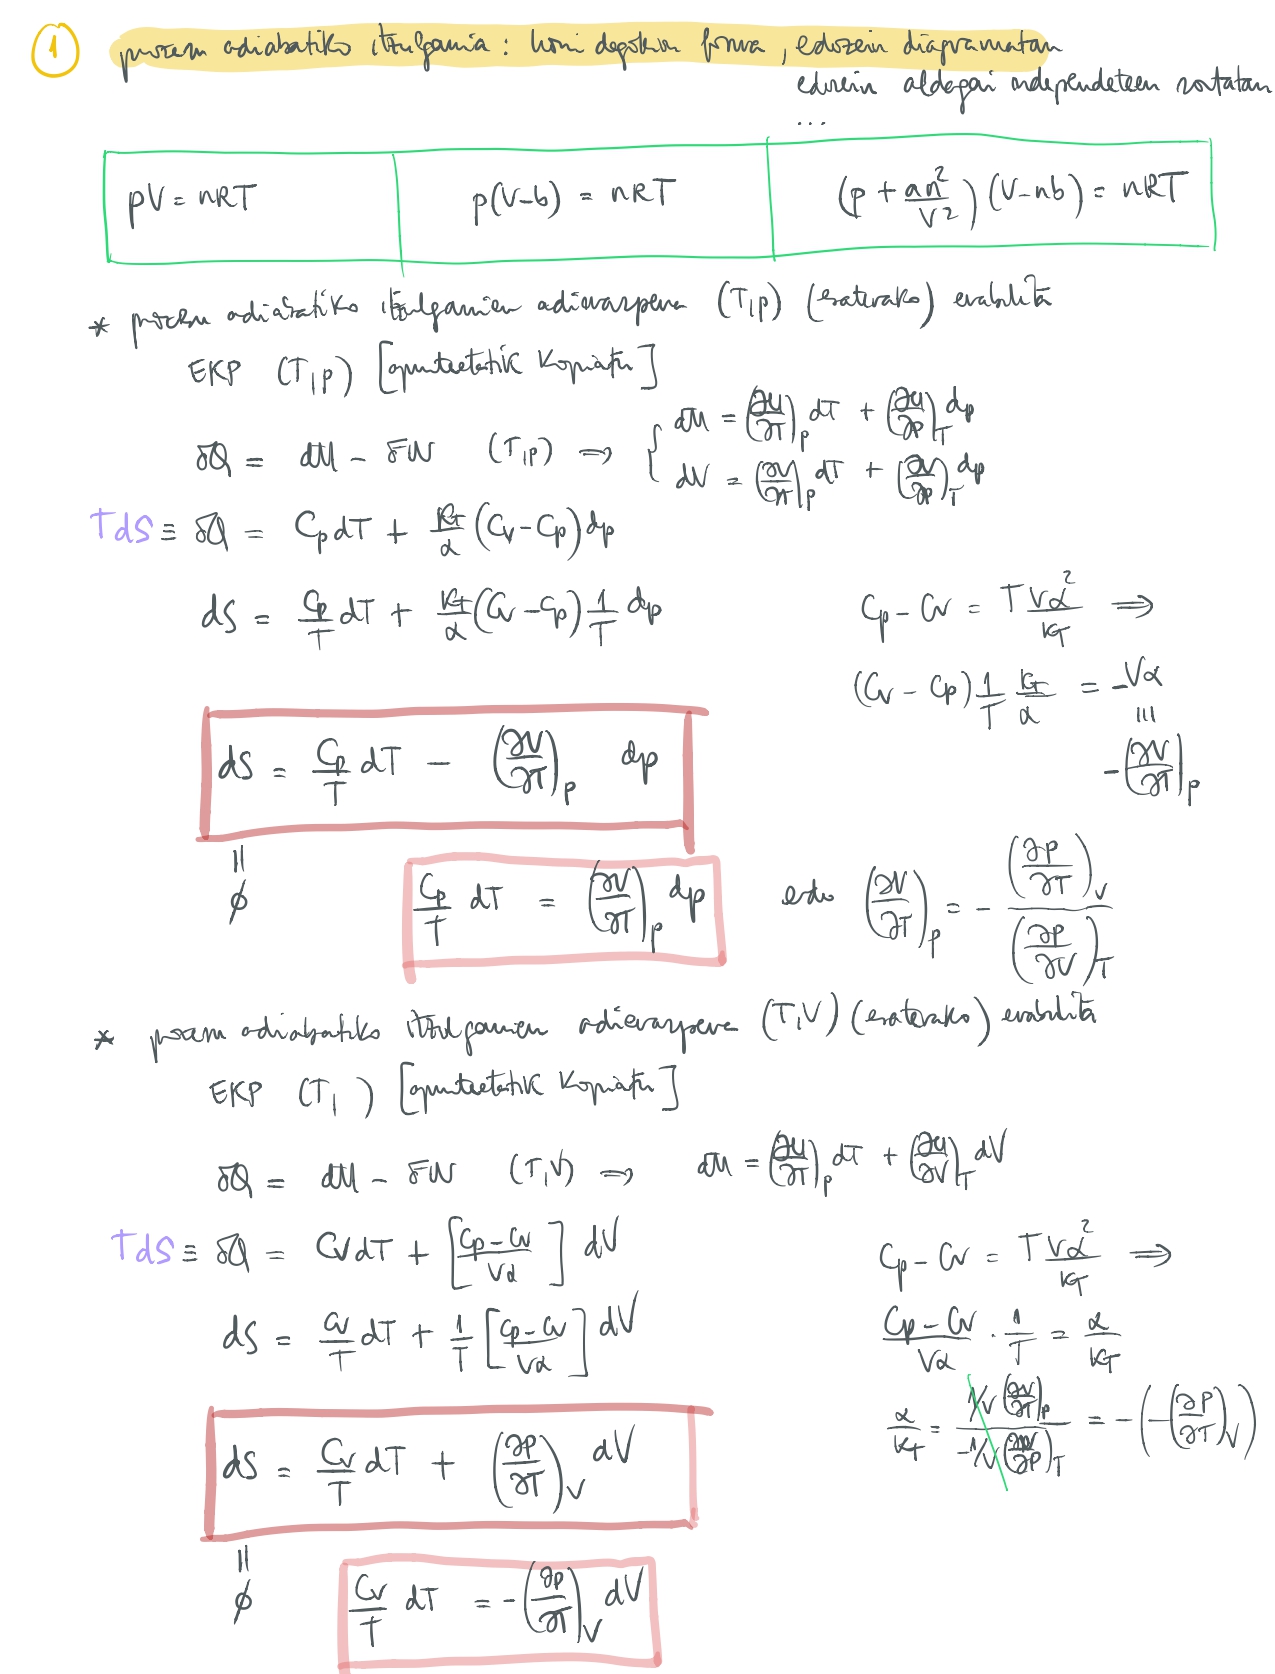 1 prozesu adiabatiko itzulgarria: honi dagokion forma, edozein diagramatan
edozein aldagai independenteen
...
pV = nRT   p(V-b) = nRT   (p + an²/V²)(V-nb) = nRT
* prozesu adiabatiko itzulgarrien adierazpena (T,p) (esaterako) erabilita
EKP (T,p) [apunteetatik kopiatu]
δQ = dU - δW (T,p) ⇒ { dU = (∂U/∂T)_p dT + (∂U/∂p)_T dp
dV = (∂V/∂T)_p dT + (∂V/∂p)_T dp
TdS ≡ δQ = Cp dT + κT/α (Cv - Cp) dp
dS = Cp/T dT + κT/α (Cv - Cp) 1/T dp
Cp - Cv = T Vα²/κT ⇒
(Cv - Cp) 1/T κT/α = -Vα
≡
-(∂V/∂T)_p
dS = Cp/T dT - (∂V/∂T)_p dp
=
ϕ
Cp/T dT = (∂V/∂T)_p dp   edo (∂V/∂T)_p = - (∂p/∂T)_V / (∂p/∂V)_T
* prozesu adiabatiko itzulgarrien adierazpena (T,V) (esaterako) erabilita
EKP (T, ) [apunteetatik kopiatu]
δQ = dU - δW (T,V) ⇒ dU = (∂U/∂T)_p dT + (∂U/∂V)_T dV
TdS ≡ δQ = Cv dT + [Cp - Cv / Vα] dV
dS = Cv/T dT + 1/T [Cp - Cv / Vα] dV
Cp - Cv = T Vα²/κT ⇒
Cp - Cv / Vα · 1/T = α/κT
α/κT = 1/V (∂V/∂T)_p / -1/V (∂V/∂p)_T = -(-(∂p/∂T)_V)
dS = Cv/T dT + (∂p/∂T)_V dV
=
ϕ
Cv/T dT = -(∂p/∂T)_V dV